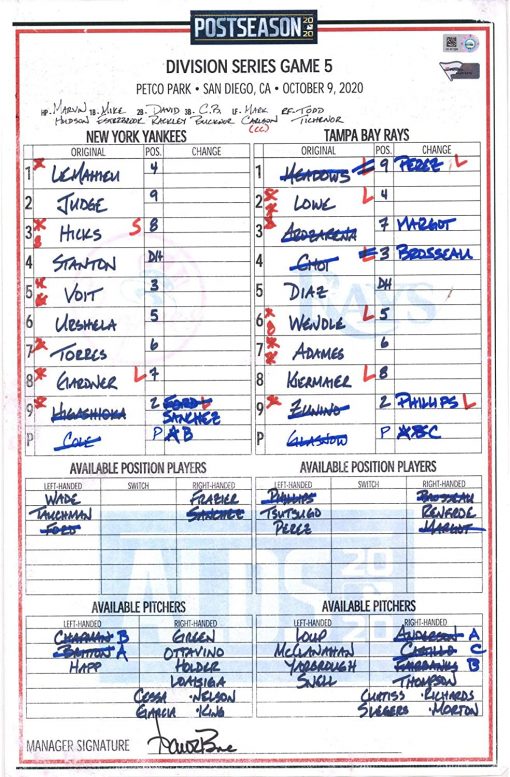 POSTSEASON 2020
DIVISION SERIES GAME 5
PETCO PARK • SAN DIEGO, CA • OCTOBER 9, 2020
HP- MARVIN 1B- MIKE 2B- DAVID 3B- C.B. LF- MARK RF- TODD
HUDSON ESTABROOK RACKLEY BUCKNOR CARLSON TICHENOR
(CC)
NEW YORK YANKEES TAMPA BAY RAYS
ORIGINAL POS. CHANGE ORIGINAL POS. CHANGE
1 LEMAHIEU 4 1 MEADOWS L 9 PEREZ L
2 JUDGE 9 2 LOWE L 4
3 HICKS S 8 3 AROZARENA 7 MARGOT
4 STANTON DH 4 CHOI L 3 BROSSEAU
5 VOIT 3 5 DIAZ DH
6 URSHELA 5 6 WENDLE L 5
7 TORRES 6 7 ADAMES 6
8 GARDNER L 7 8 KIERMAIER L 8
9 HIGASHIOKA 2 FORD L 9 ZUNINO 2 PHILLIPS L
SANCHEZ
P COLE P A B P GLASNOW P A B C
AVAILABLE POSITION PLAYERS AVAILABLE POSITION PLAYERS
LEFT-HANDED SWITCH RIGHT-HANDED LEFT-HANDED SWITCH RIGHT-HANDED
WADE FRAZIER PHILLIPS BROSSEAU
TAUCHMAN SANCHEZ TSUTSUGO RENFROE
FORD PEREZ MARGOT
ALDS 2020
AVAILABLE PITCHERS AVAILABLE PITCHERS
LEFT-HANDED RIGHT-HANDED LEFT-HANDED RIGHT-HANDED
CHAPMAN B GREEN LOUP ANDERSON A
BRITTON A OTTAVINO MCCLANAHAN CASTILLO C
HAPP HOLDER YARBROUGH FAIRBANKS B
LOAISIGA SNELL THOMPSON
CESSA •NELSON CURTISS •RICHARDS
GARCIA •KING SLEGERS •MORTON
MANAGER SIGNATURE